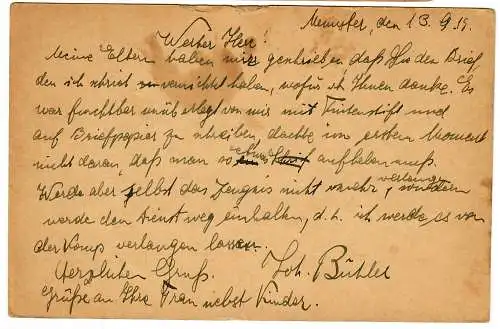 Münster, den 13.9.15.
Werther Herr!
Meine Eltern haben mir geschrieben, daß Sie den Brief,
den ich schrieb vernichtet haben, wofür ich Ihnen danke. Es
war furchtbar unüberlegt von mir mit Tintenstift und
auf Briefpapier zu schreiben, dachte im ersten Moment
nicht daran, daß man so etwas aufheben muß.
Werde aber selbst das Zeugnis nicht mehr verlangen, sondern
werde den Dienstweg einhalten, d. h. ich werde es von
der Komp verlangen lassen.
Herzlichen Gruß. Joh. Bühler
Grüße an Ihre Frau nebst Kinder.